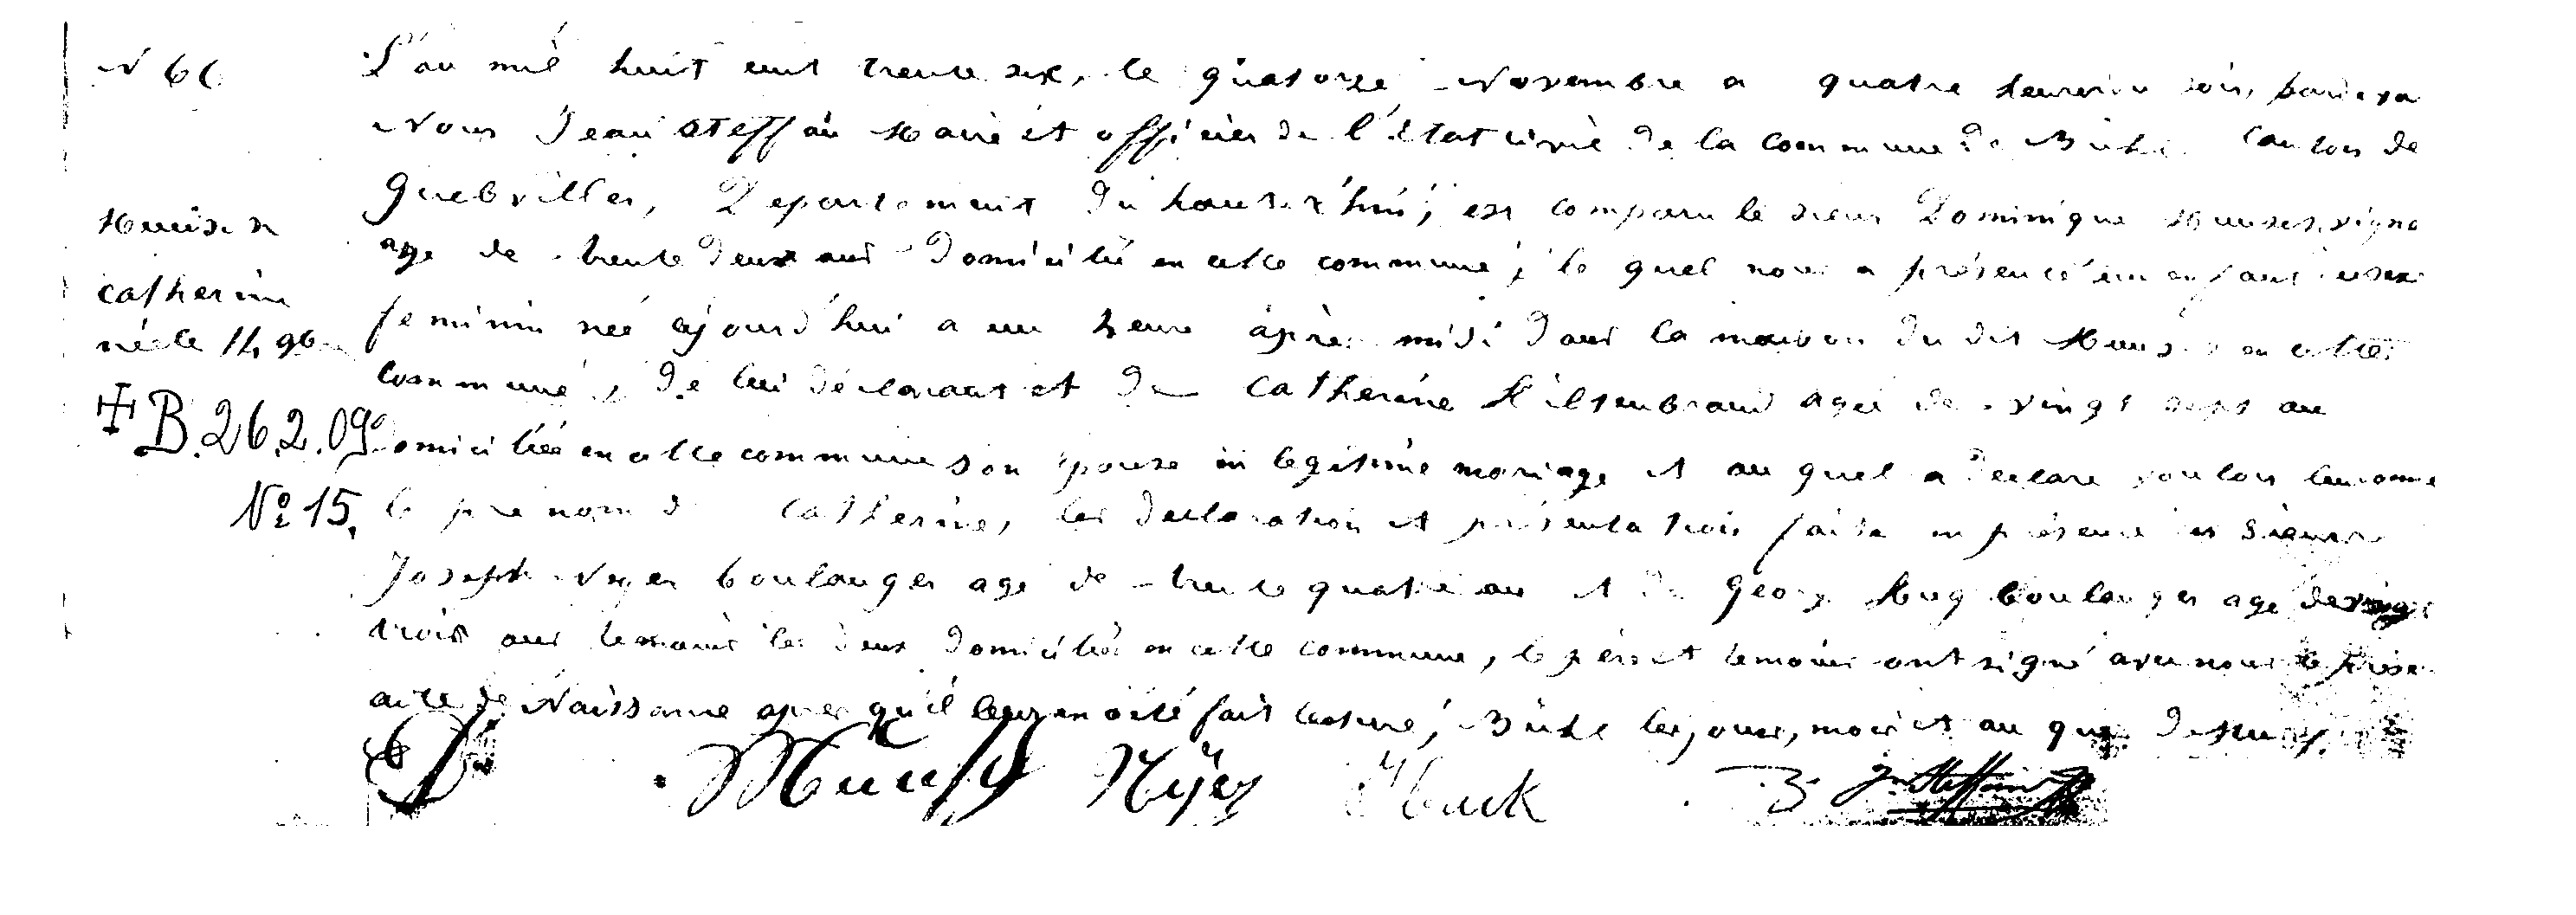 N 66
L'an mil huit cent trente six, le quatorze Novembre a quatre heures du soir, pardevant
Nous Jean Steffan Maire et officier de l'état civil de la commune de Buhl Canton de
Guebviller, Departement du haut rhin, est comparu le sieur Dominique
Catherine
age de trente deux ans Domicilié en cette commune, le quel nous a présenté un enfant
née le 14 9bre
feminin neé ajourd'hui a un heure après midi dans la maison du dit en cette
commune, de lui déclarant et de Catherine Hilsenbrand agée de vingt sept an
✝ B. 26.2.09
Domiciliée en cette commune son épouse in legitime mariage et au quel a declare vouloir donne
No 15.
le prenom de Catherine, les declaration et présentation faite en présence des Sieurs
Joseph boulanger age de trente quatre an et de Georg Hug boulanger age de vingt
trois ans temoins les deux Domiciliés en cette commune, le père et temoins ont signé avec nous le
acte de Naissance apres qu'il leur en a été fait lecture, Buhl les jour, mois et an que dessus.
Nÿer Huck Jn Steffan